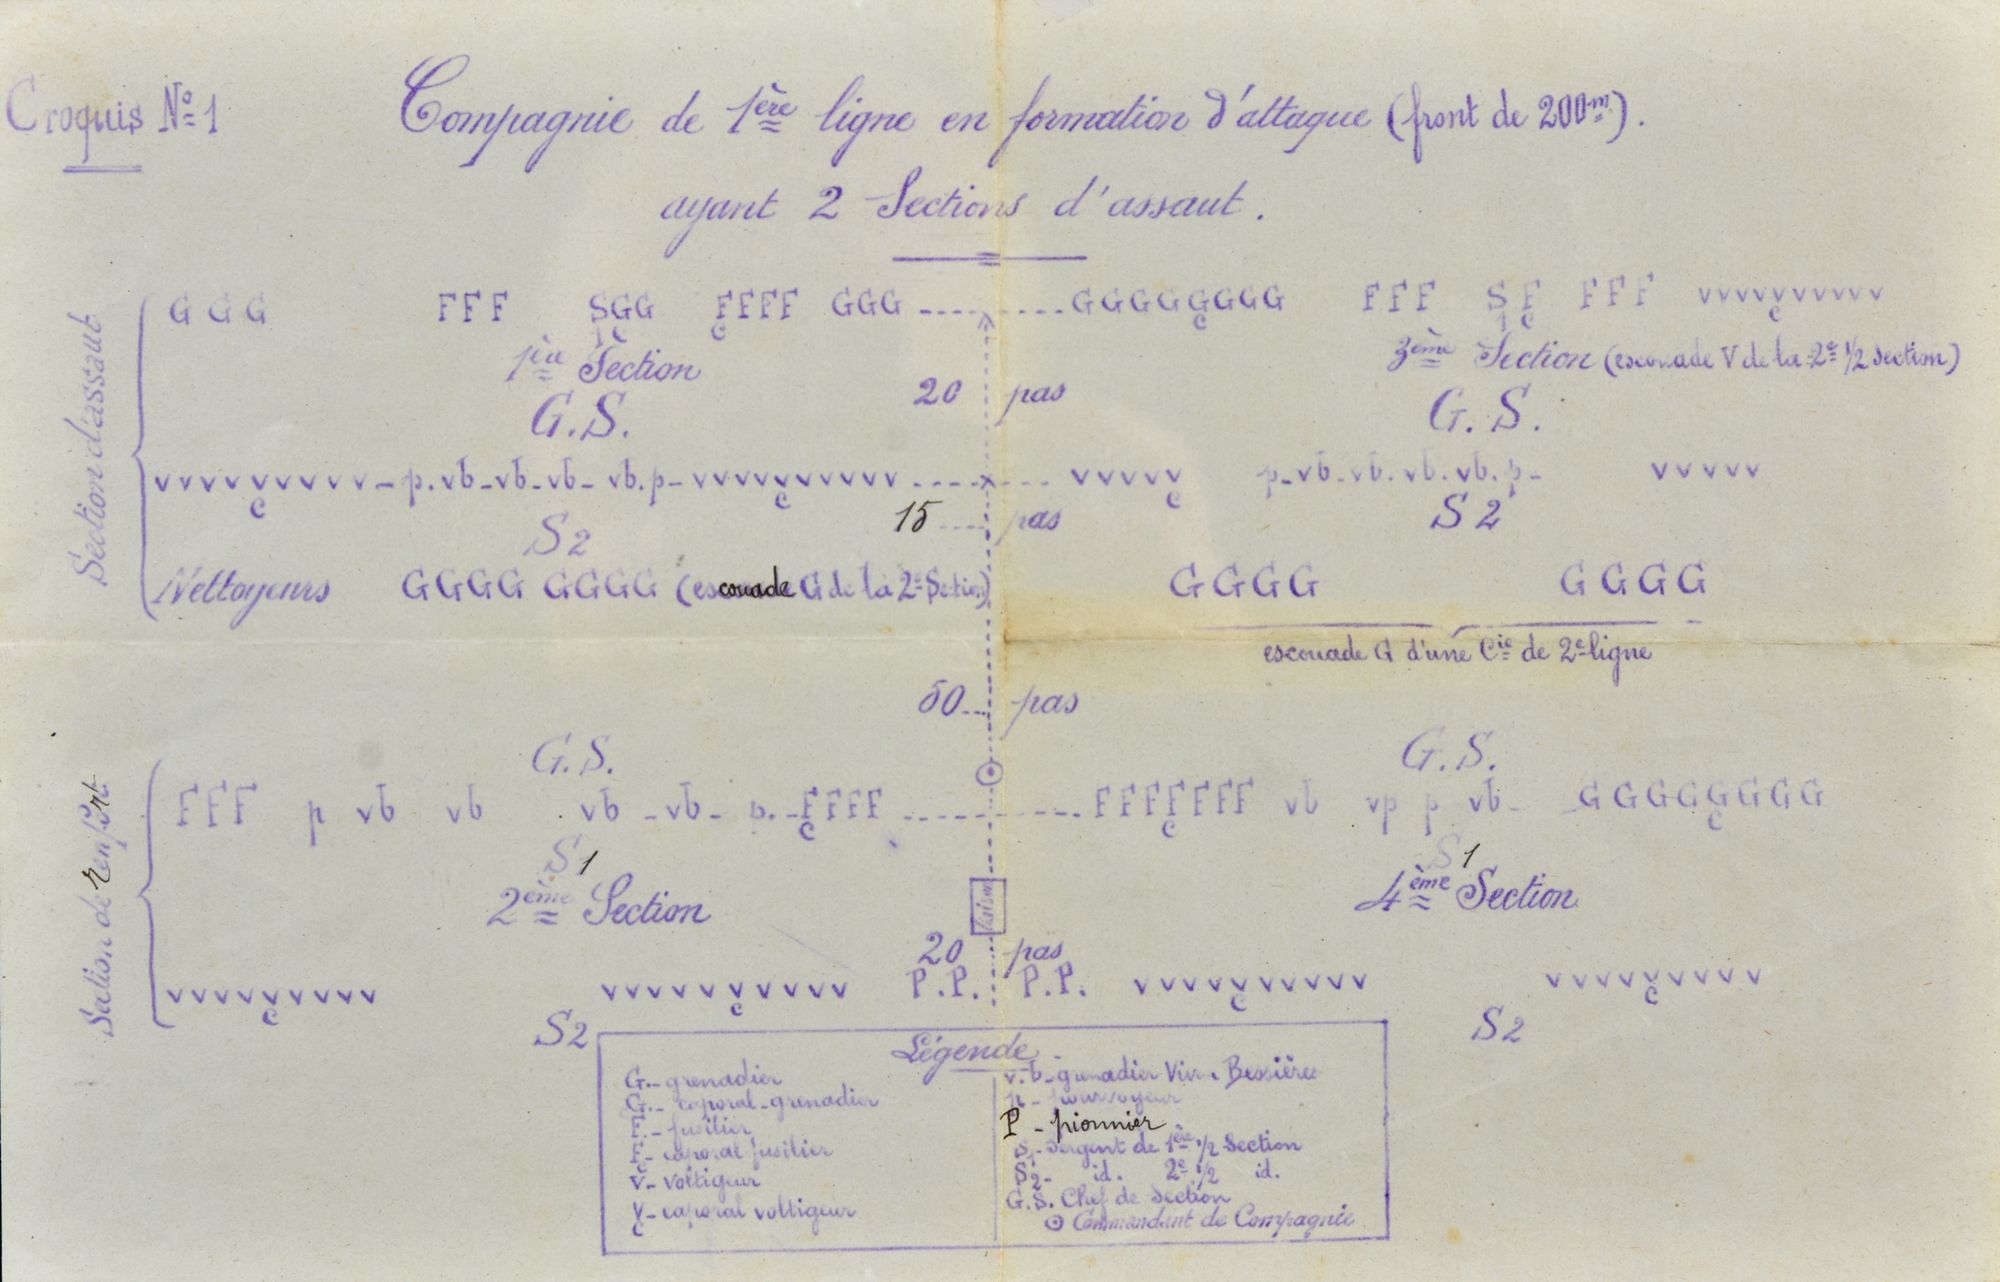 Croquis Nº 1
Compagnie de 1ère ligne en formation d'attaque (front de 200m).
ayant 2 Sections d'assaut.
Section d'assaut
G G G FFF SGG FFFF GGG GGGGGGGG FFF S F FFF vvvvvvvvvv
c c c c c
1ère Section 3ème Section (escouade V de la 2e 1/2 section)
20 pas
G.S. G.S.
vvvvvvvvv - p.vb-vb-vb- vb.p- vvvvvvvvv vvvvv p-vb-vb.vb.vb.p- vvvvv
c c c
15 pas
S2 S2
Nettoyeurs GGGG GGGG (escouade G de la 2e Section) GGGG GGGG
escouade G d'une Cie de 2e ligne
50 pas
G.S. G.S.
Section de renfort
FFF p vb vb vb - vb - p.-FFFF FFFFFFF vb vp p vb- GGGGGGGG
c c c
S1 S1
2ème Section 4ème Section
20 pas
P.P. P.P.
vvvvvvvvv vvvvvvvvvv vvvvvvvvvv vvvvvvvvv
c c c c
S2 S2
Légende
G.- grenadier
G.- caporal-grenadier
F.- fusilier
F- caporal fusilier
c
v- voltigeur
v- caporal voltigeur
c
v.b-grenadier Viv. Bessières
p- pourvoyeur
P - pionnier
S1- Sergent de 1ère 1/2 Section
S2- id. 2e 1/2 id.
G.S. Chef de Section
⊙ Commandant de Compagnie